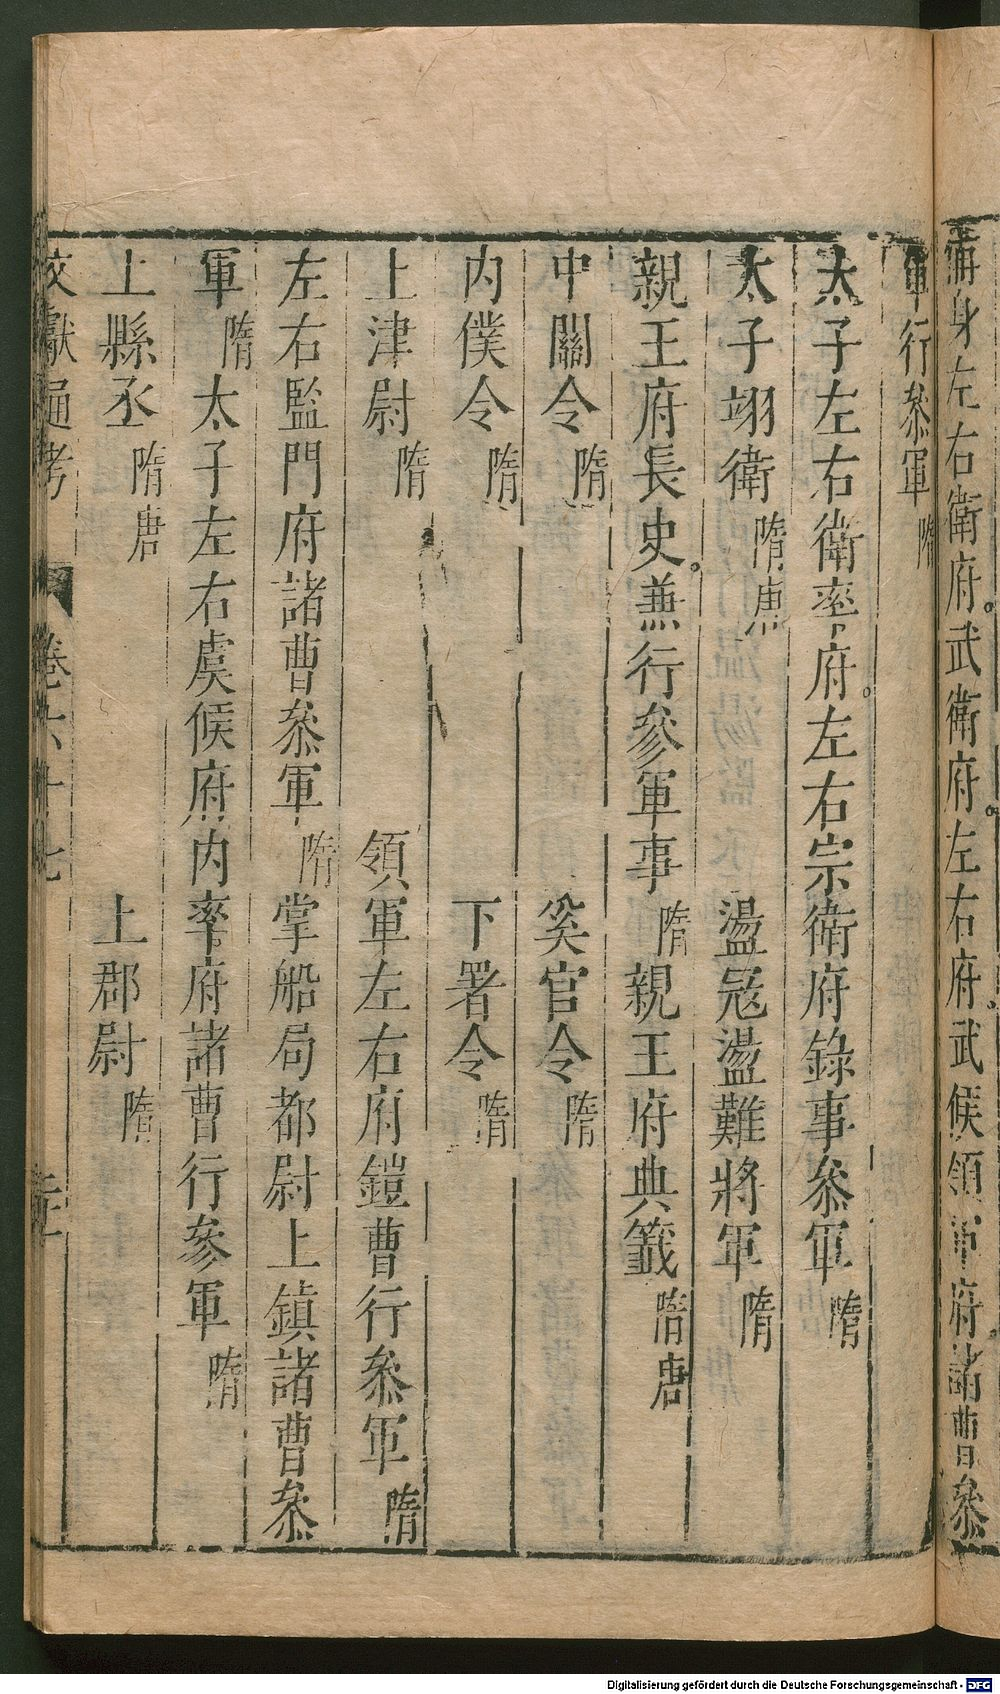 備身左右衛府。武衛府。左右府武候領軍府。諸曹叅
軍行叅軍隋
太子左右衛率府。左右宗衛府錄事叅軍隋
太子翊衛隋唐 盪冦盪難將軍隋
親王府長史。兼行參軍事隋親王府典籤隋唐
中關令隋 奚官令隋
内僕令隋 下署令隋
上津尉隋 領軍左右府鎧曹行叅軍隋
左右監門府諸曹叅軍隋掌船局都尉上鎮諸曹叅
軍隋太子左右虞候府内率府諸曹行參軍隋
上縣丞隋唐 上郡尉隋
文獻通考 卷六十七
Digitalisierung gefördert durch die Deutsche Forschungsgemeinschaft - DFG